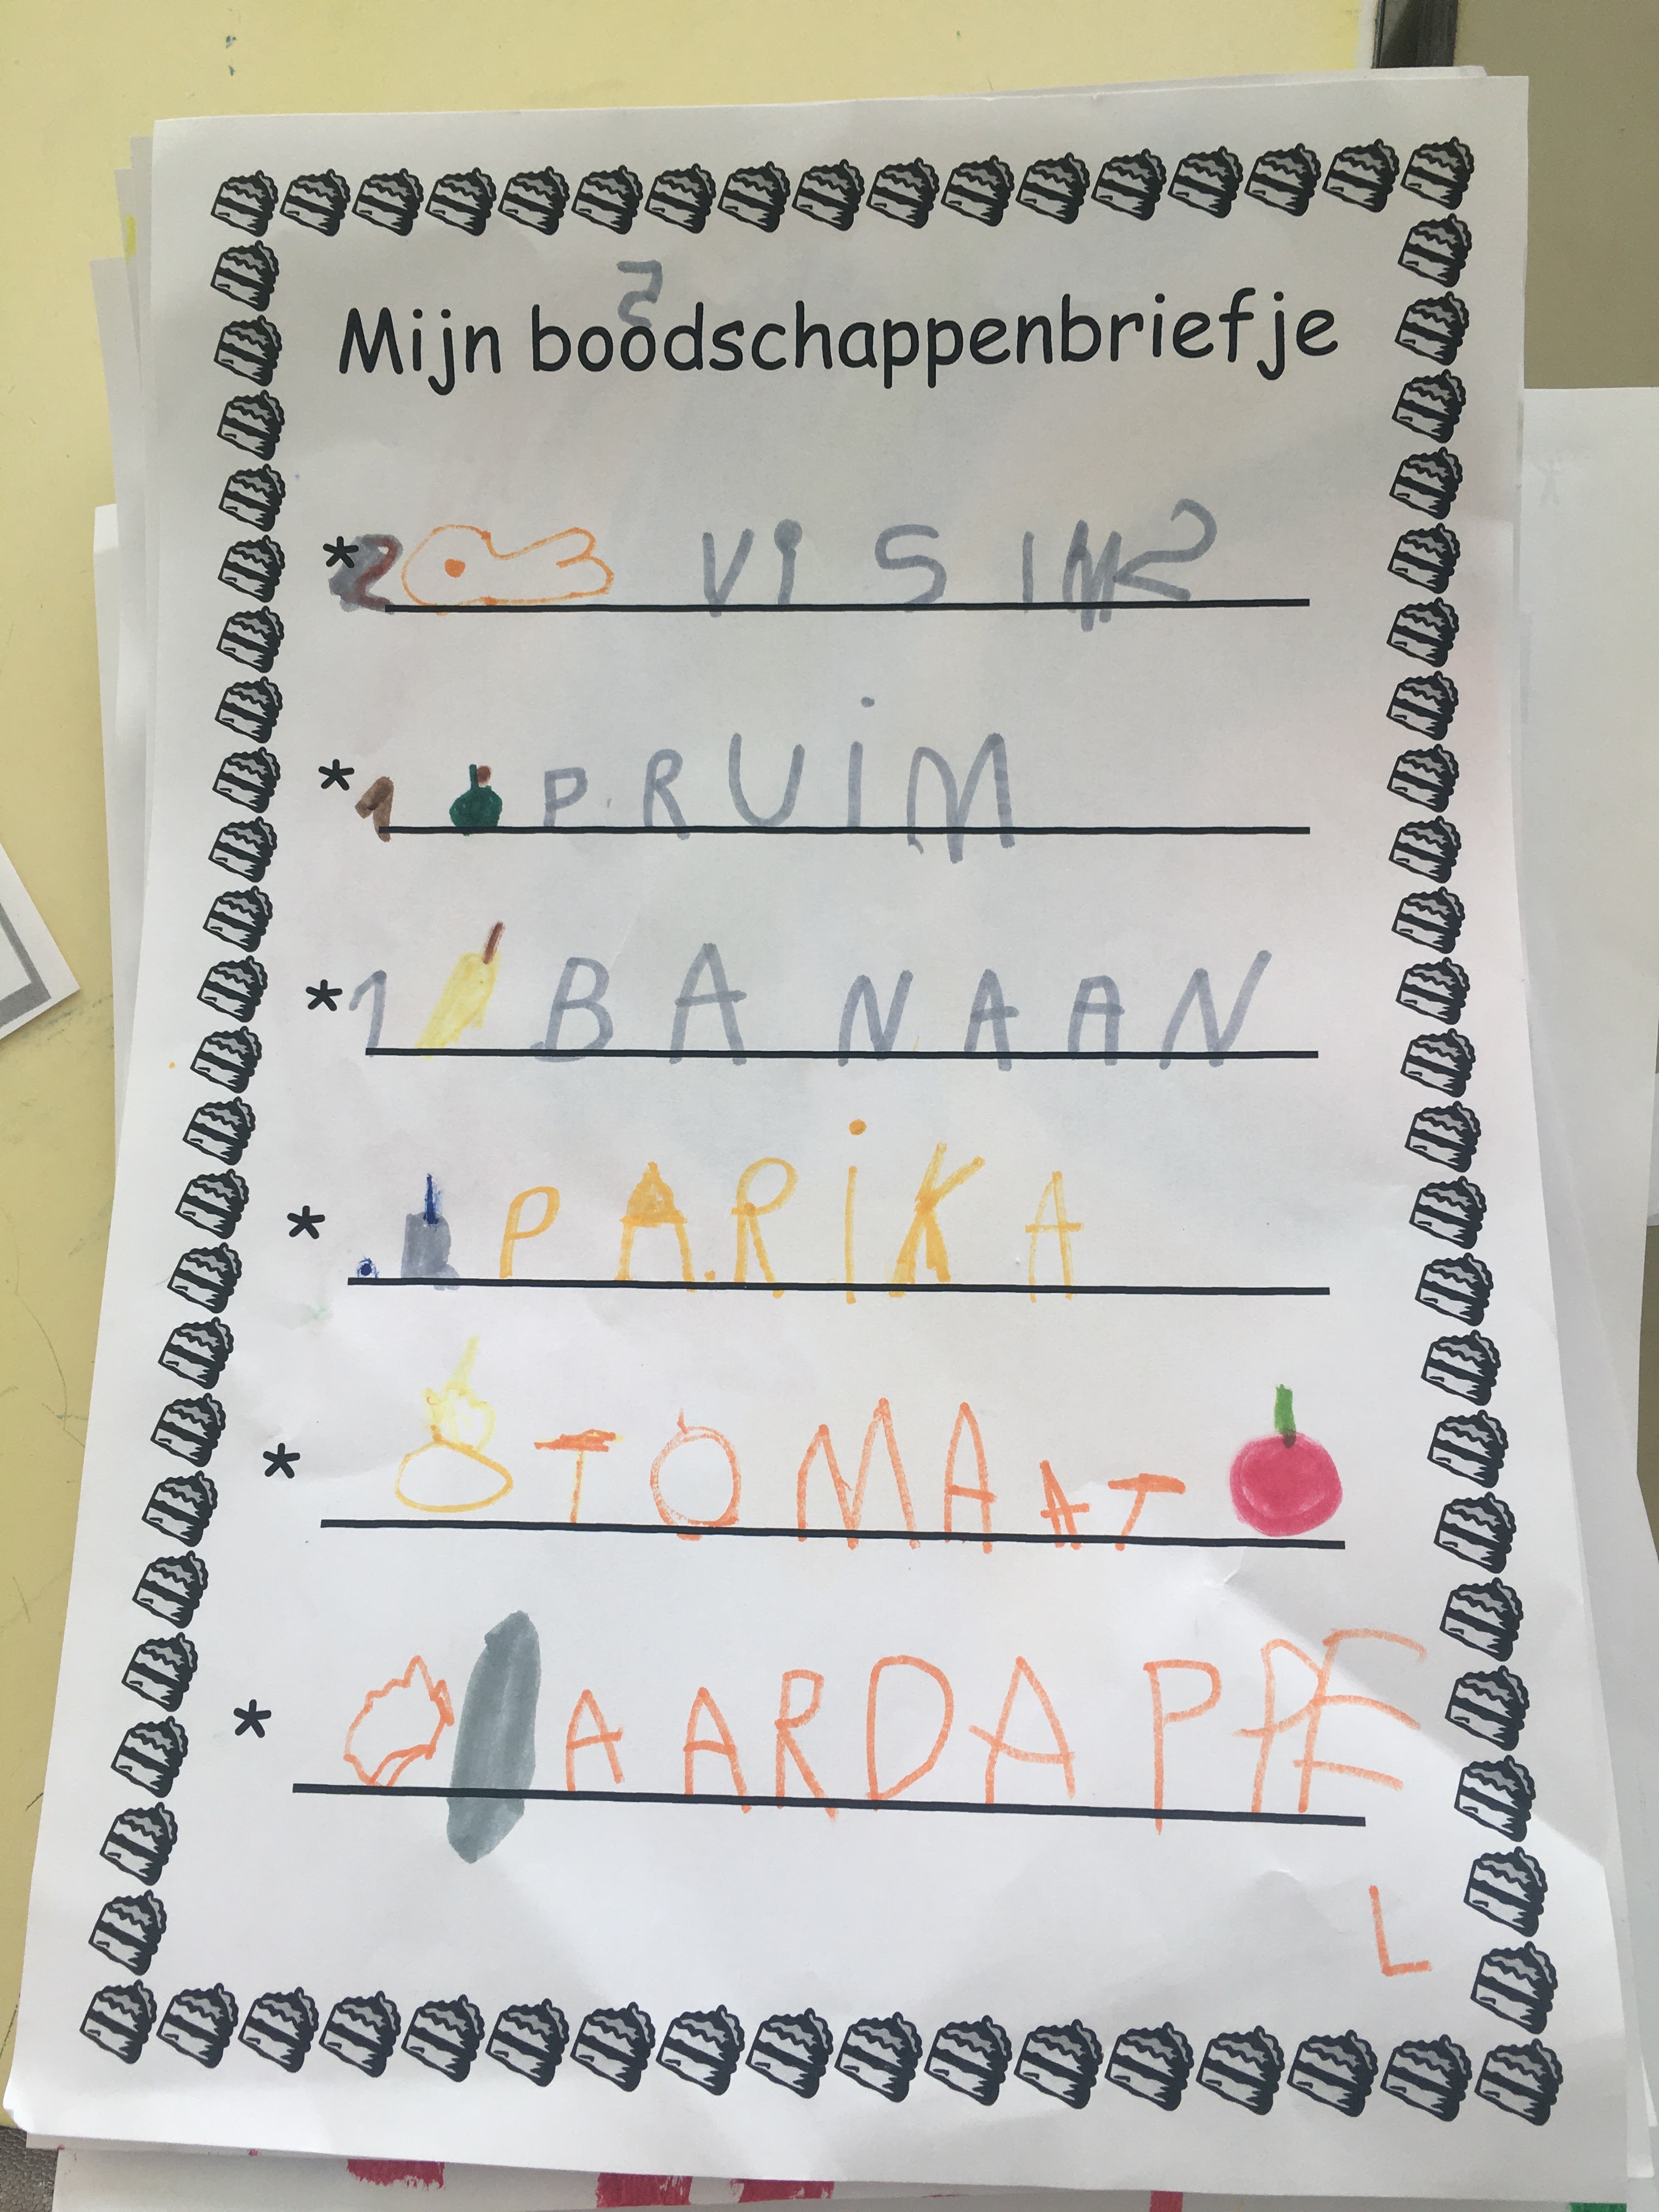 Mijn boodschappenbriefje
* 2 VIS
* 1 PRUiM
* 1 BANAAN
* PARiKA
* TOMAAT
* AARDAPPE
L